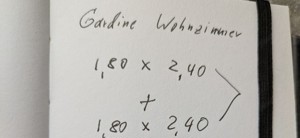 Gardine Wohnzimmer
1,80 x 2,40
+
1,80 x 2,40